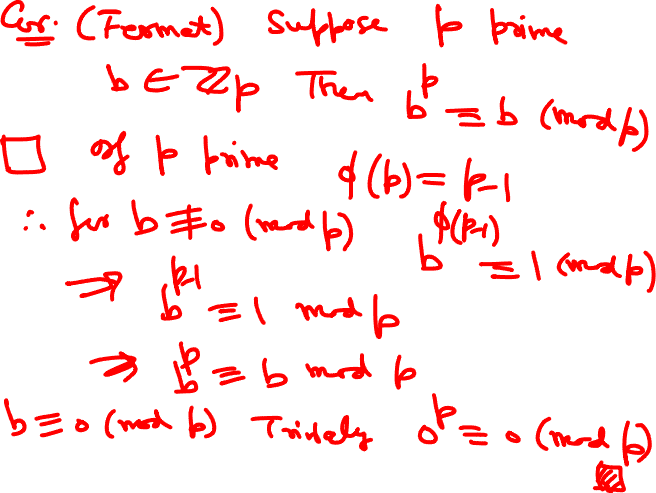 Cor. (Fermat) Suppose p prime
b ∈ ℤp Then b^p ≡ b (mod p)
□ If p prime ϕ(p) = p-1
∴ for b ≢ 0 (mod p) b^ϕ(p-1) ≡ 1 (mod p)
⇒ b^p-1 ≡ 1 mod p
⇒ b^p ≡ b mod p
b ≡ 0 (mod p) Trivially 0^p ≡ 0 (mod p)